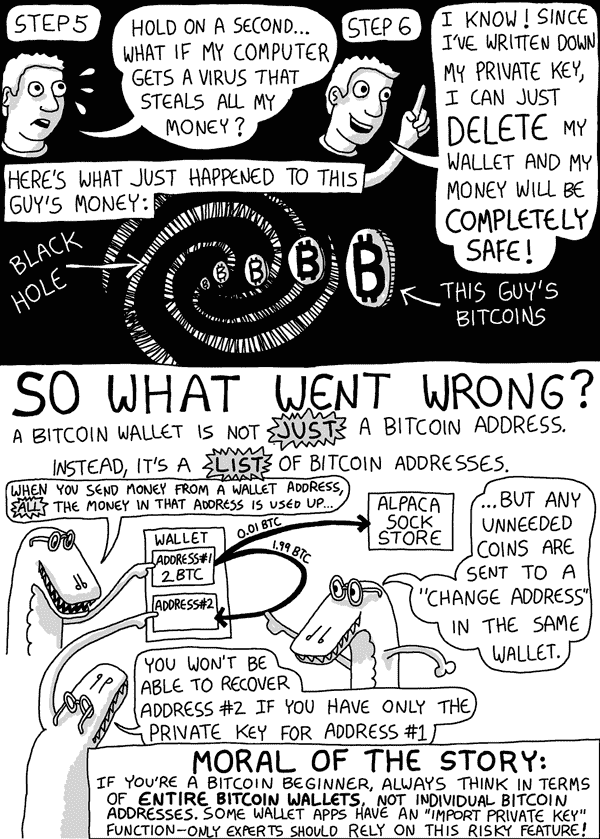 STEP 5
HOLD ON A SECOND...
WHAT IF MY COMPUTER
GETS A VIRUS THAT
STEALS ALL MY
MONEY?
STEP 6
I KNOW! SINCE
I'VE WRITTEN DOWN
MY PRIVATE KEY,
I CAN JUST
DELETE MY
WALLET AND MY
MONEY WILL BE
COMPLETELY
SAFE!
HERE'S WHAT JUST HAPPENED TO THIS
GUY'S MONEY:
BLACK
HOLE
THIS GUY'S
BITCOINS
SO WHAT WENT WRONG?
A BITCOIN WALLET IS NOT JUST A BITCOIN ADDRESS.
INSTEAD, IT'S A LIST OF BITCOIN ADDRESSES.
WHEN YOU SEND MONEY FROM A WALLET ADDRESS,
ALL THE MONEY IN THAT ADDRESS IS USED UP...
WALLET
ADDRESS#1
2 BTC
ADDRESS#2
0.01 BTC
1.99 BTC
ALPACA
SOCK
STORE
...BUT ANY
UNNEEDED
COINS ARE
SENT TO A
"CHANGE ADDRESS"
IN THE SAME
WALLET.
YOU WON'T BE
ABLE TO RECOVER
ADDRESS #2 IF YOU HAVE ONLY THE
PRIVATE KEY FOR ADDRESS #1
MORAL OF THE STORY:
IF YOU'RE A BITCOIN BEGINNER, ALWAYS THINK IN TERMS
OF ENTIRE BITCOIN WALLETS, NOT INDIVIDUAL BITCOIN
ADDRESSES. SOME WALLET APPS HAVE AN "IMPORT PRIVATE KEY"
FUNCTION—ONLY EXPERTS SHOULD RELY ON THIS RISKY FEATURE!